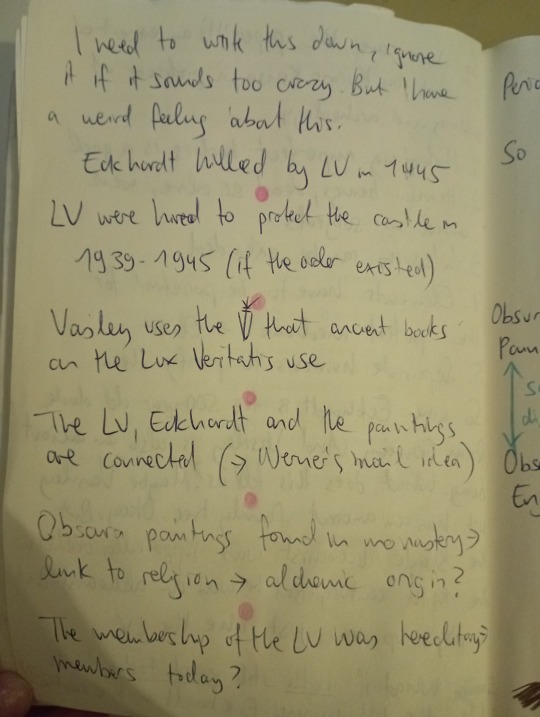 I need to write this down, ignore
it if it sounds too crazy. But I have
a weird feeling about this.
Eckhardt killed by LV in 1445
LV were hired to protect the castle in
1939-1945 (if the order existed)
Vasiley uses the that ancient books
on the Lux Veritatis use
The LV, Eckhardt and the paintings
are connected (→ Werner's mail idea)
Obscura paintings found in monastery →
link to religion → alchemic origin?
The membership of the LV was hereditary →
members today?
Perio
So
Obsur
Pain
Obs
En